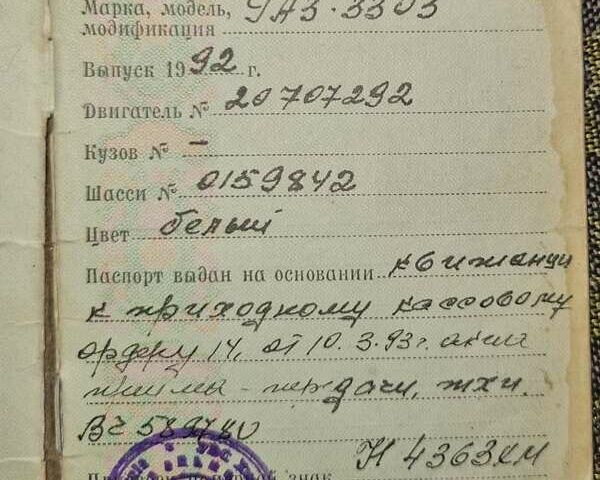 Марка, модель, УАЗ-3303
модификация
Выпуск 1992 г.
Двигатель № 20707292
Кузов № —
Шасси № 0159842
Цвет белый
Паспорт выдан на основании квитанции
к приходному кассовому
ордеру 14, от 10.3.93г. акта
передачи,
ВЧ
знак Н 4363КМ